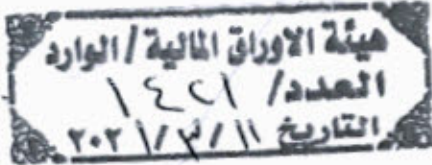 هيئة الاوراق المالية / الوارد
العدد / ١٤٢١
التاريخ ١١ / ٣ / ٢٠٢١